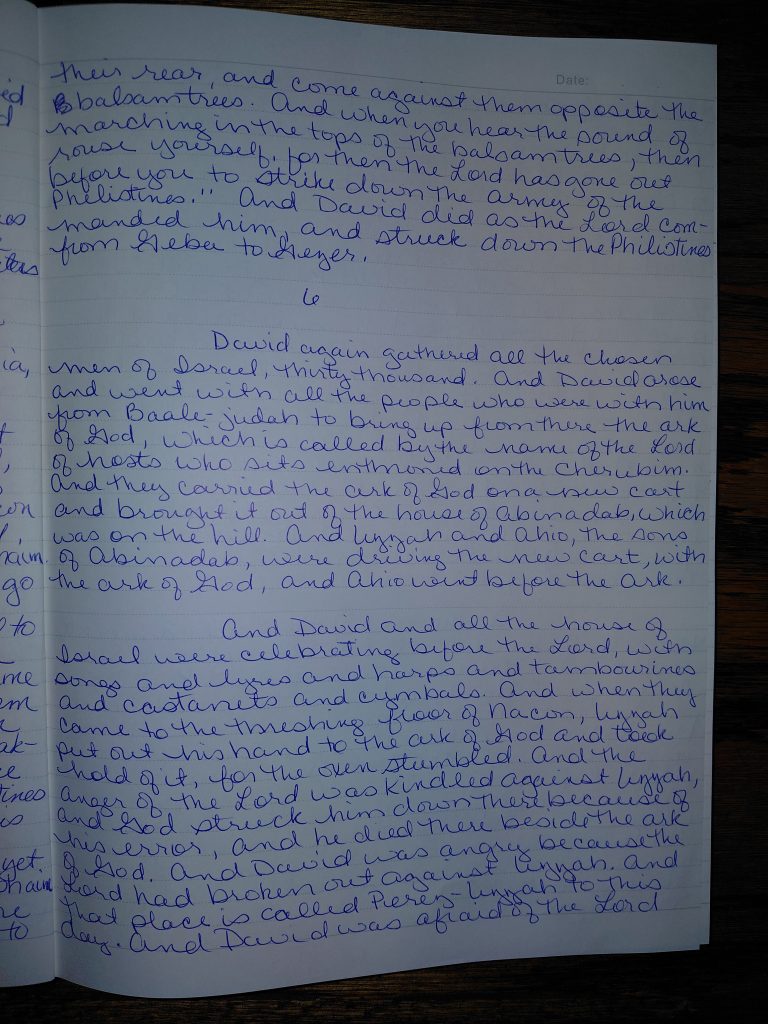 Date:
their rear, and come against them opposite the
balsam trees. And when you hear the sound of
marching in the tops of the balsam trees, then
rouse yourself, for then the Lord has gone out
before you to strike down the army of the
Philistines." And David did as the Lord com-
manded him, and struck down the Philistines
from Geba to Gezer.
6
David again gathered all the chosen
men of Israel, thirty thousand. And David arose
and went with all the people who were with him
from Baale-judah to bring up from there the ark
of God, which is called by the name of the Lord
of hosts who sits enthroned on the cherubim.
And they carried the ark of God on a new cart
and brought it out of the house of Abinadab, which
was on the hill. And Uzzah and Ahio, the sons
of Abinadab, were driving the new cart, with
the ark of God, and Ahio went before the ark.
And David and all the house of
Israel were celebrating before the Lord, with
songs and lyres and harps and tambourines
and castanets and cymbals. And when they
came to the threshing floor of Nacon, Uzzah
put out his hand to the ark of God and took
hold of it, for the oxen stumbled. And the
anger of the Lord was kindled against Uzzah,
and God struck him down there because of
his error, and he died there beside the ark
of God. And David was angry because the
Lord had broken out against Uzzah. And
that place is called Perez-Uzzah to this
day. And David was afraid of the Lord